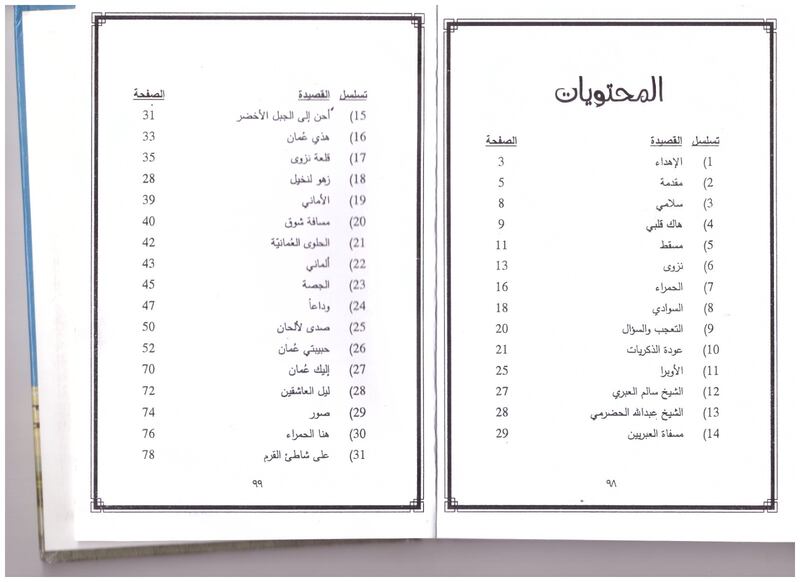 المحتويات
تسلسل القصيدة الصفحة
1) الإهداء 3
2) مقدمة 5
3) سلامي 8
4) هاك قلبي 9
5) مسقط 11
6) نزوى 13
7) الحمراء 16
8) السوادي 18
9) التعجب والسؤال 20
10) عودة الذكريات 21
11) الأوبرا 25
12) الشيخ سالم العبري 27
13) الشيخ عبدالله الحضرمي 28
14) مسفاة العبريين 29
٩٨
تسلسل القصيدة الصفحة
15) أحن إلى الجبل الأخضر 31
16) هذي عُمان 33
17) قلعة نزوى 35
18) زهو لنخيل 28
19) الأماني 39
20) مسافة شوق 40
21) الحلوى العُمانيّة 42
22) ألماني 43
23) الجصة 45
24) وداعاً 47
25) صدى لألحان 50
26) حبيبتي عُمان 52
27) إليك عُمان 70
28) ليل العاشقين 72
29) صور 74
30) هنا الحمراء 76
31) على شاطئ القرم 78
٩٩